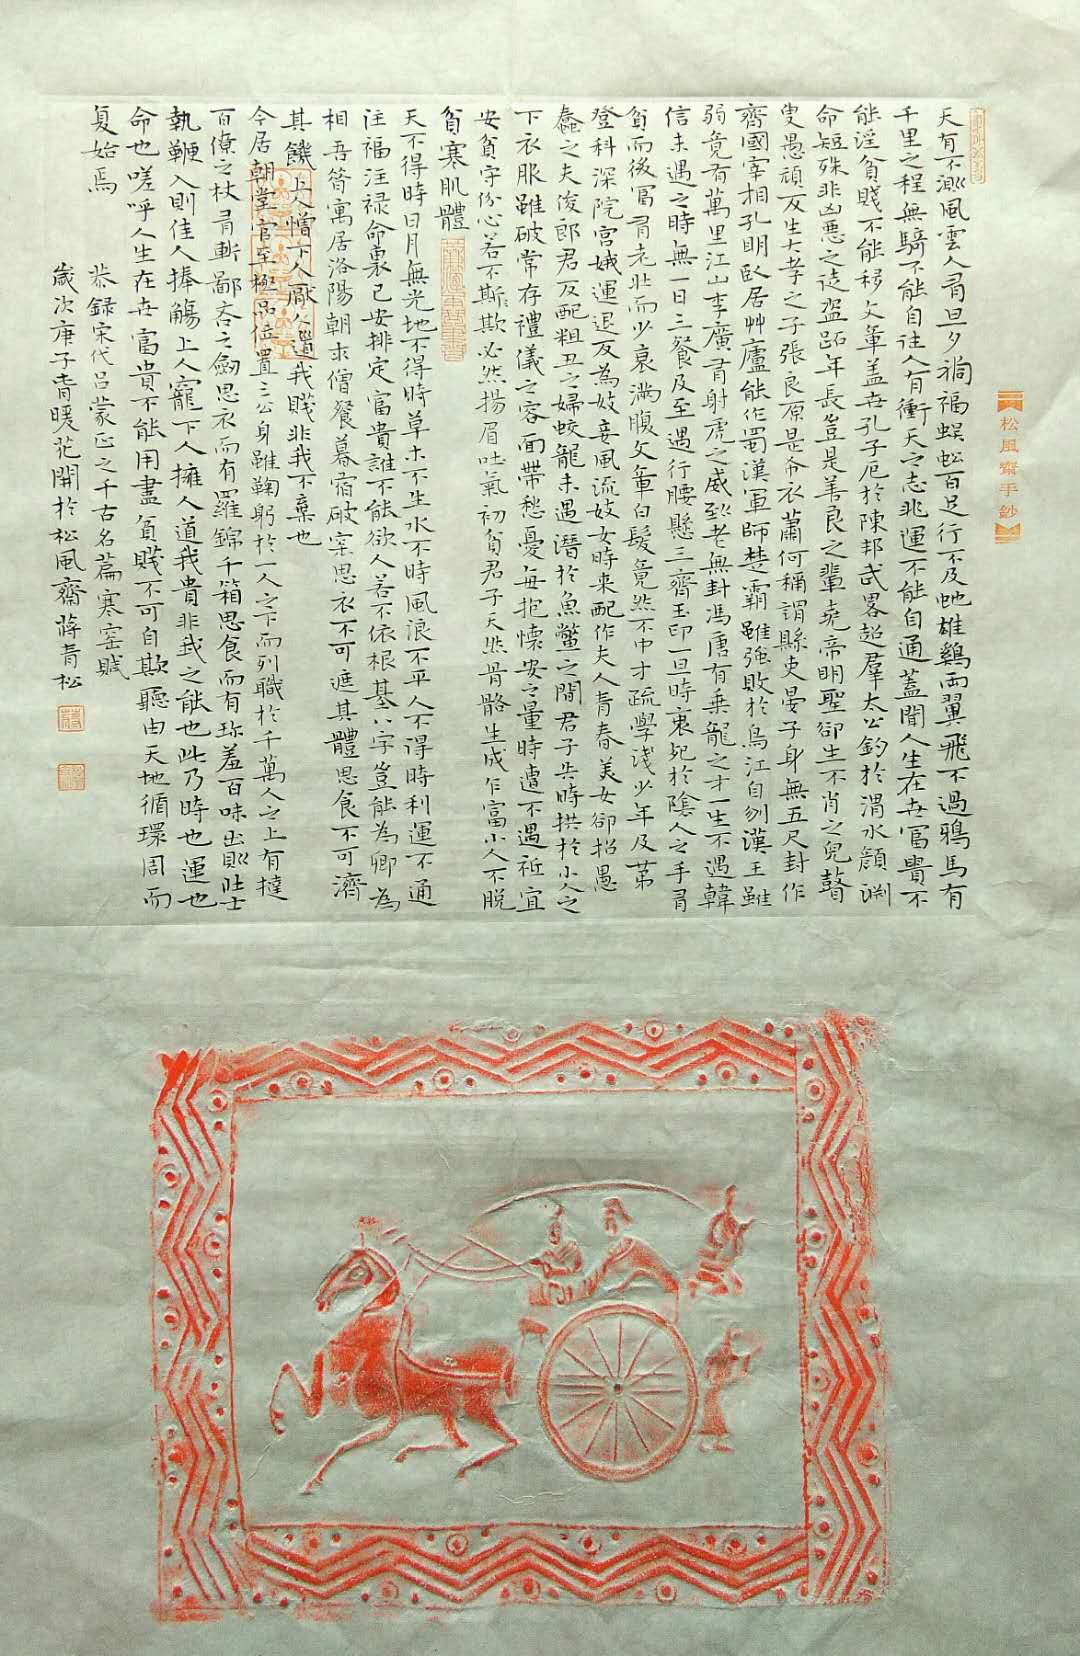 天有不測風雲人有旦夕禍福蜈蚣百足行不及虵雄鷄兩翼飛不過鴉馬有
千里之程無騎不能自往人有衝天之志非運不能自通蓋聞人生在世富貴不
能淫貧賤不能移文章蓋世孔子厄於陳邦武畧超羣太公釣於渭水顏淵
命短殊非凶惡之徒盜跖年長豈是善良之輩堯帝明聖卻生不肖之兒瞽
叟愚頑反生大孝之子張良原是布衣蕭何稱謂縣吏晏子身無五尺封作
齊國宰相孔明臥居艸廬能作蜀漢軍師楚霸雖強敗於烏江自刎漢王雖
弱竟有萬里江山李廣有射虎之威到老無封馮唐有乘龍之才一生不遇韓
信未遇之時無一日三餐及至遇行腰懸三齊玉印一旦時衰死於陰人之手有
貧而後富有老壯而少衰滿腹文章白髮竟然不中才疏學淺少年及第
登科深院宮娥運退反為妓妾風流妓女時来配作夫人青春美女卻招愚
蠢之夫俊郎君反配粗丑之婦蛟龍未遇潛於魚鱉之間君子失時拱於小人之
下衣服雖破常存禮儀之容面帶愁憂每抱懷安之量時遭不遇衹宜
安貧守份心若不斯欺必然揚眉吐氣初貧君子天然骨骼生成乍富小人不脱
貧寒肌體
天不得時日月無光地不得時草木不生水不時風浪不平人不得時利運不通
注福注禄命裏已安排定富貴誰不能欲人若不依根基八字豈能為卿為
相吾昝寓居洛陽朝求僧餐暮宿破窯思衣不可遮其體思食不可濟
其饑上人憎下人厭人道我賤非我不棄也
今居朝堂官至極品位置三公身雖鞠躬於一人之下而列職於千萬人之上有撻
百僚之杖有斬鄙吝之劍思衣而有羅錦千箱思食而有珍羞百味出則壯士
執鞭入則佳人捧觴上人寵下人擁人道我貴非我之能也此乃時也運也
命也嗟呼人生在世富貴不能用盡貧賤不可自欺聽由天地循環周而
复始焉
恭録宋代吕蒙正之千古名篇寒窑賦
歲次庚子青暖花開於松風齋蔣青松
松風齋手鈔